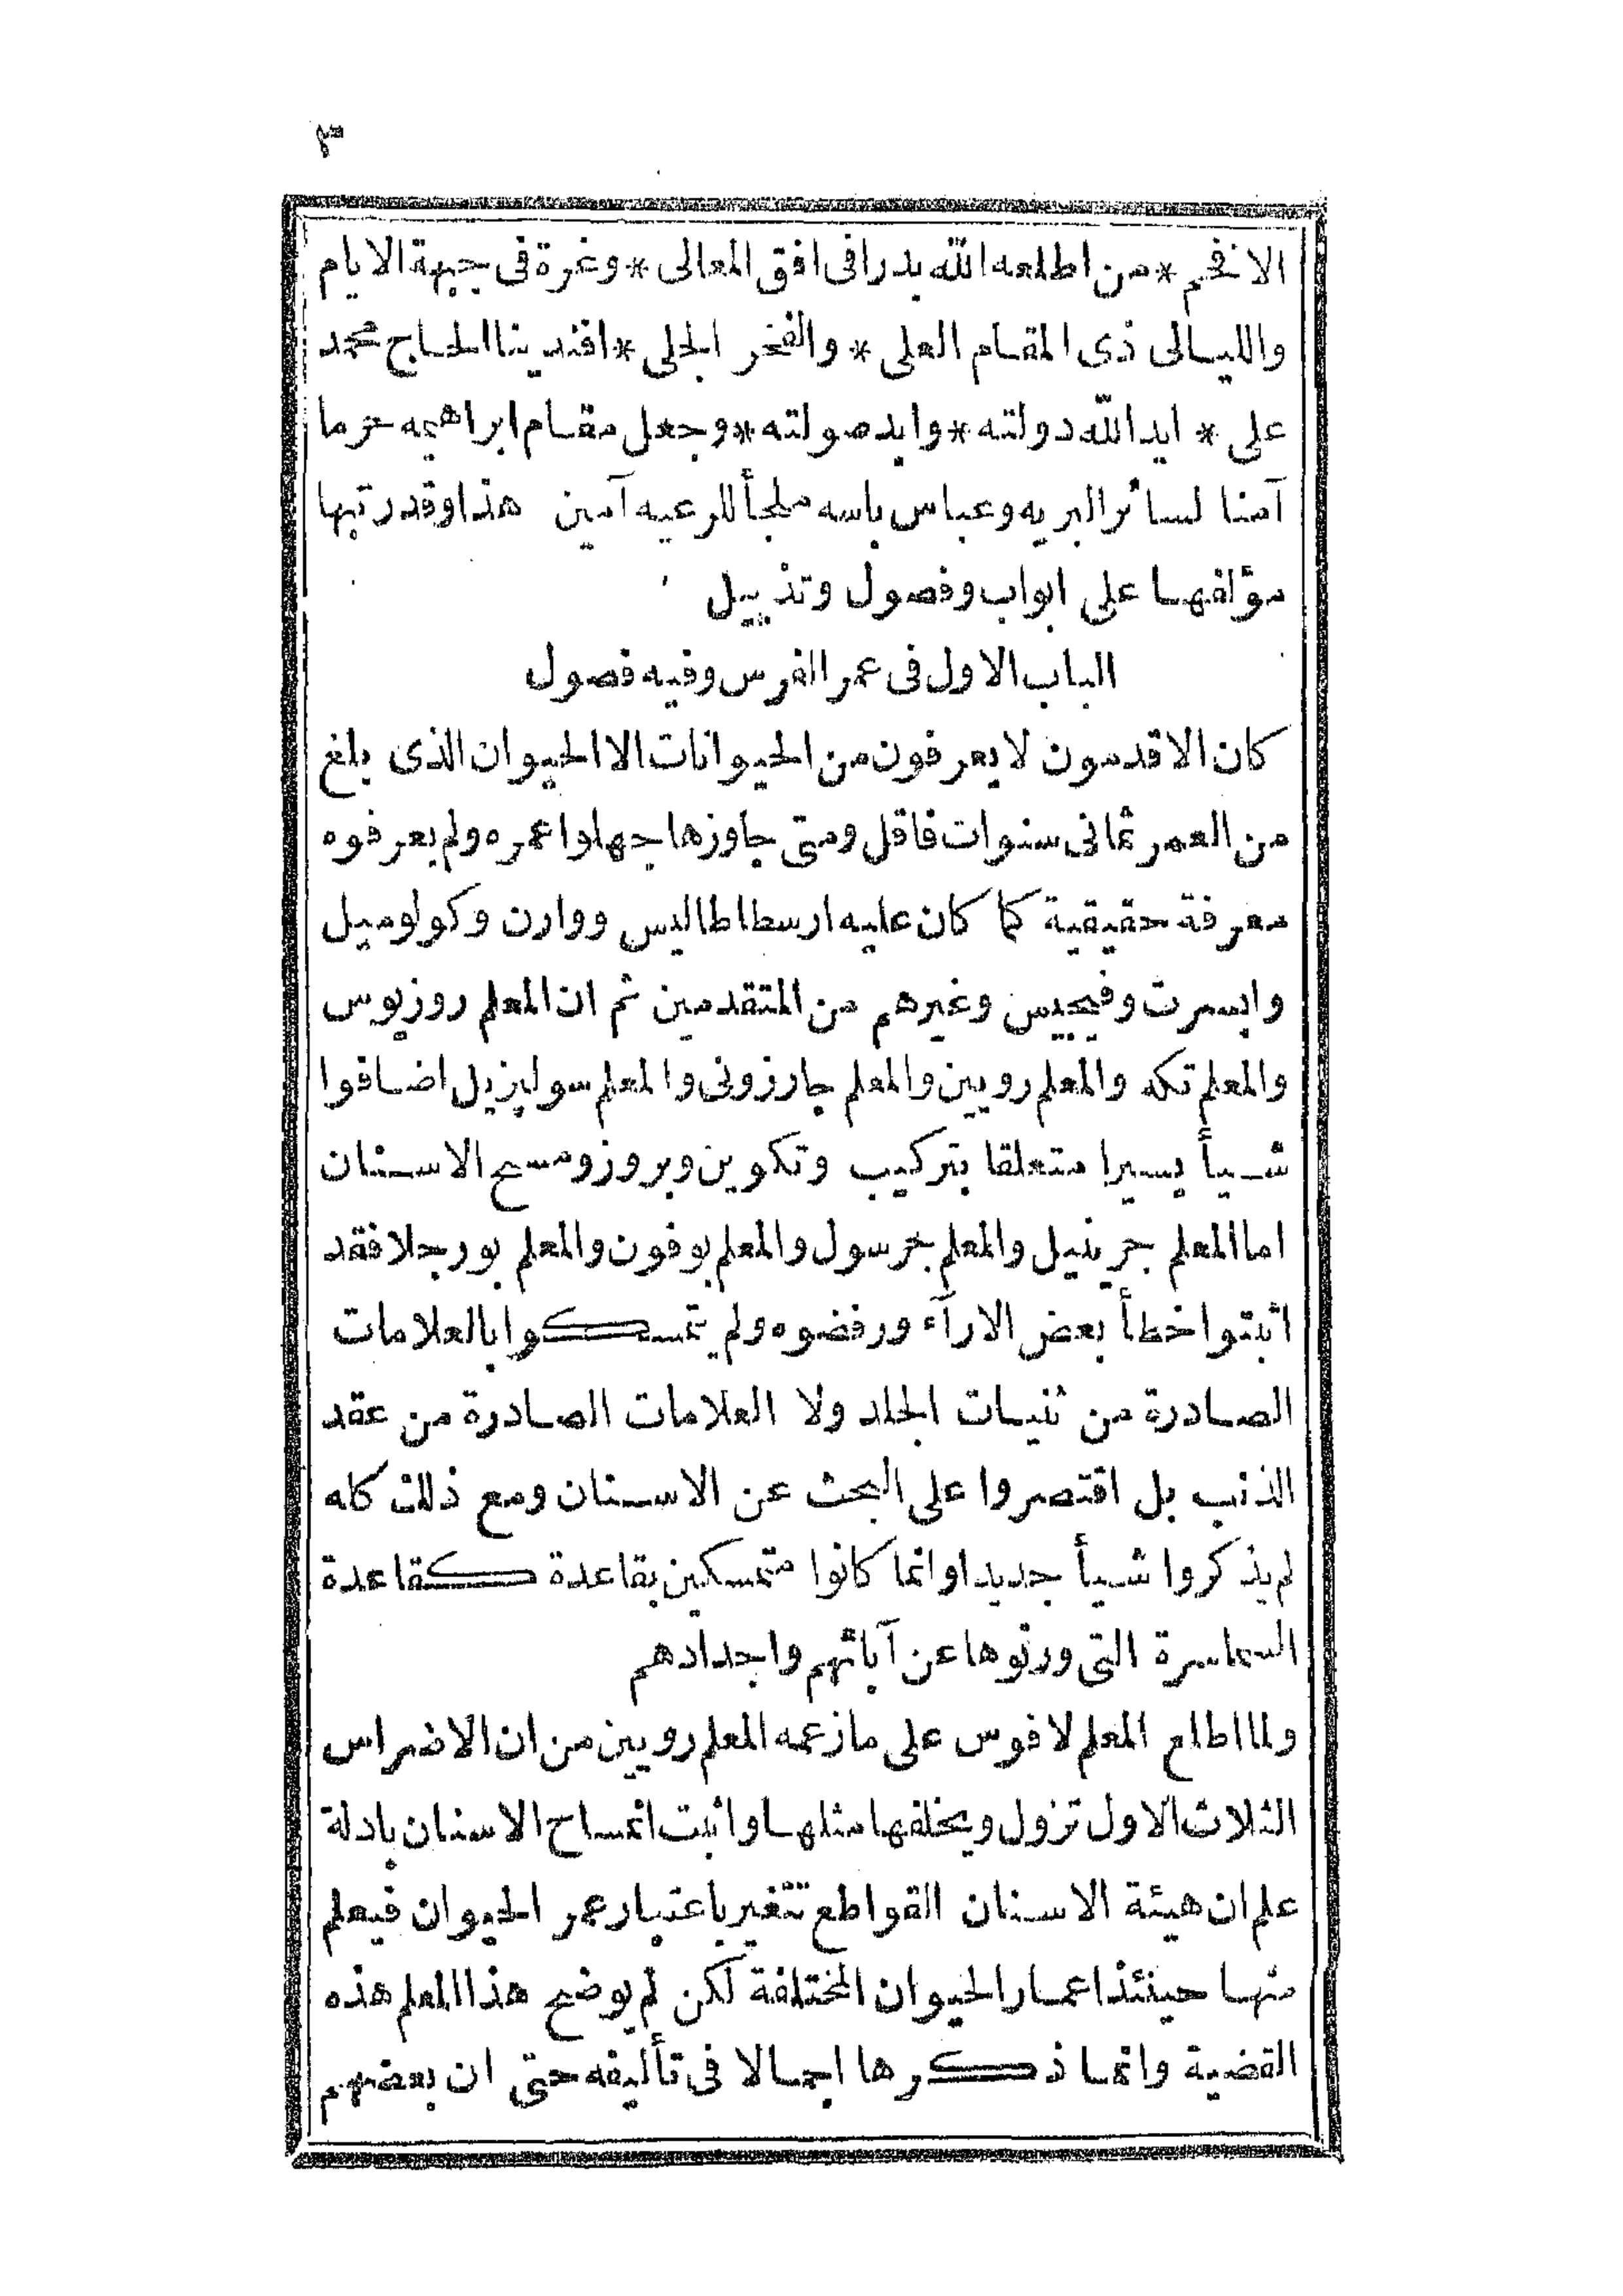 ٣
الافخم * من اطلعه الله بدرا فى افق المعالى * وغرة فى جبهة الايام
والليالى ذى المقام العلى * والفخر الجلى * افندينا الحاج محمد
على * ايد الله دولته * وابد صولته * وجعل مقام ابراهيمه حرما
آمنا لسائر البريه وعباس باسه ملجأ للرعيه آمين هذا وقد رتبها
مؤلفها على ابواب وفصول وتذييل
الباب الاول فى عمر الفرس وفيه فصول
كان الاقدمون لا يعرفون من الحيوانات الا الحيوان الذى بلغ
من العمر ثمانى سنوات فاقل ومتى جاوزها جهلوا عمره ولم يعرفوه
معرفة حقيقية كما كان عليه ارسطاطاليس ووارن وكولوميل
وابسرت وفيجيس وغيرهم من المتقدمين ثم ان المعلم روزيوس
والمعلم تكه والمعلم رويين والمعلم جارزونى والمعلم سوليزيل اضافوا
شيأ يسيرا متعلقا بتركيب وتكوين وبروز ومسح الاسنان
اما المعلم جرينيل والمعلم جرسول والمعلم بوفون والمعلم بورجلا فقد
اثبتوا خطأ بعض الارآء ورفضوه ولم يتمسكوا بالعلامات
الصادرة من ثنيات الجلد ولا العلامات الصادرة من عقد
الذنب بل اقتصروا على البحث عن الاسنان ومع ذلك كله
لم يذكروا شيأ جديدا وانما كانوا متمسكين بقاعدة كقاعدة
السماسرة التى ورثوها عن آبائهم واجدادهم
ولما اطلع المعلم لافوس على ما زعمه المعلم رويين من ان الاضراس
الثلاث الاول تزول ويخلفها مثلها واثبت انمساح الاسنان بادلة
علم ان هيئة الاسنان القواطع تتغير باعتبار عمر الحيوان فيعلم
منها حينئذ اعمار الحيوان المختلفة لكن لم يوضح هذا المعلم هذه
القضية وانما ذكرها اجمالا فى تأليفه حتى ان بعضهم